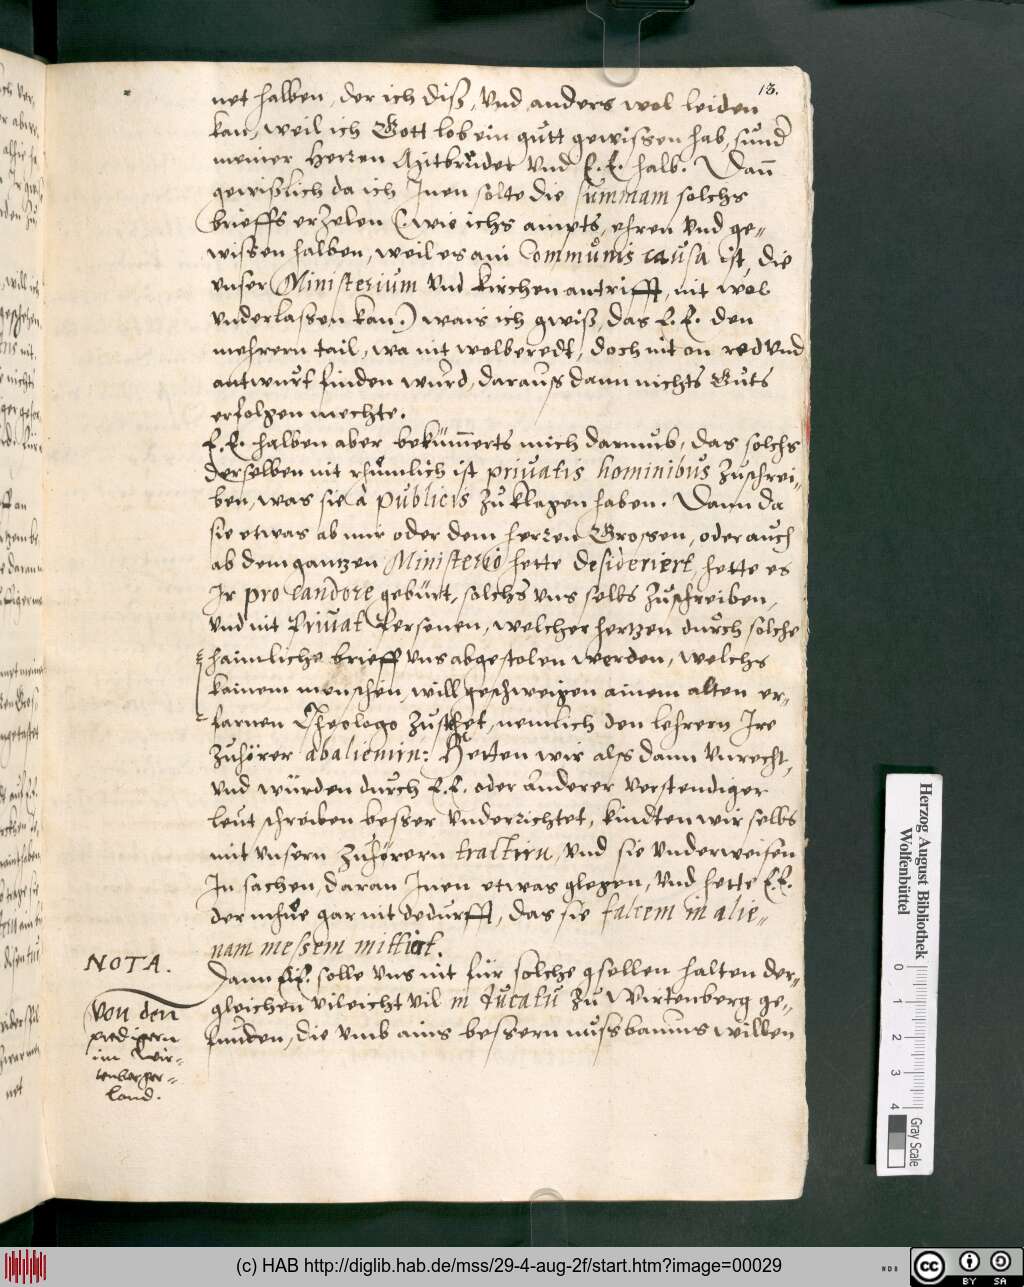 13.
net halben, der ich diß, vnd anders wol leiden
kan, weil ich Gott lob ein gůtt gewissen hab, sůnd
meiner Herren Mitbrůder vnd E. E. halb. Dañ
gewißlich da ich Inen solte die summam solchs
brieffs erzelen (wie ichs ampts, ehren vnd ge„
wissen halben, weil es ain Commůnis caůsa ist, die
vnser Ministerium vnd kirchen antrifft, nit wol
vnderlassen kan.) wais ich gwiß, das E. E. den
mehrern tail, wa nit wolberedt, doch nit on red vnd
antwurt finden wurd, darauß dann nichts Gůts
erfolgen mechte.
E. E. halben aber bekümerts mich darumb, das solchs
derselben nit rhůmlich ist priuatis hominibus zůschrei„
ben, was sie a publicis zů klagen haben. Dann da
sie etwas ab mir oder dem Herren Grossen, oder auch
ab dem gantzen Ministerio hette desideriert, hette es
Ir pro candore gebürt, solchs vns selbs zůschreiben,
vnd nit Priuat Personen, welcher hertzen durch solche
haimliche brieff vns abgestolen werden, welchs
kainem menschen, will geschweigen ainem alten er„
farnen Theologo zusthet, nemlich den lehrern Ire
zůhörer abaliemirn: Hetten wir alß dann vnrecht,
vnd würden durch E. E. oder anderer verstendiger
leut schreiben besser vnderrichtet, kindten wir selbs
mit vnsern zůhörern tractirn, vnd sie vnderweisen
In sachen, daran Inen etwas glegen, vnd hette E. E.
der mhüe gar nit bedurfft, das sie falcem in alie„
nam messem mittirt.
Dann E. E. solle vns nit für solche gsellen halten der„
gleichen vileicht vil in Ducatu zů Wirtenberg ge„
funden, die vmb ains bessern nussbaums willen
NOTA.
Von den
predigern
im Wir„
tenberger„
land.
Herzog August Bibliothek
Wolfenbüttel
0 1 2 3 4
Gray Scale
(c) HAB http://diglib.hab.de/mss/29-4-aug-2f/start.htm?image=00029
cc BY SA